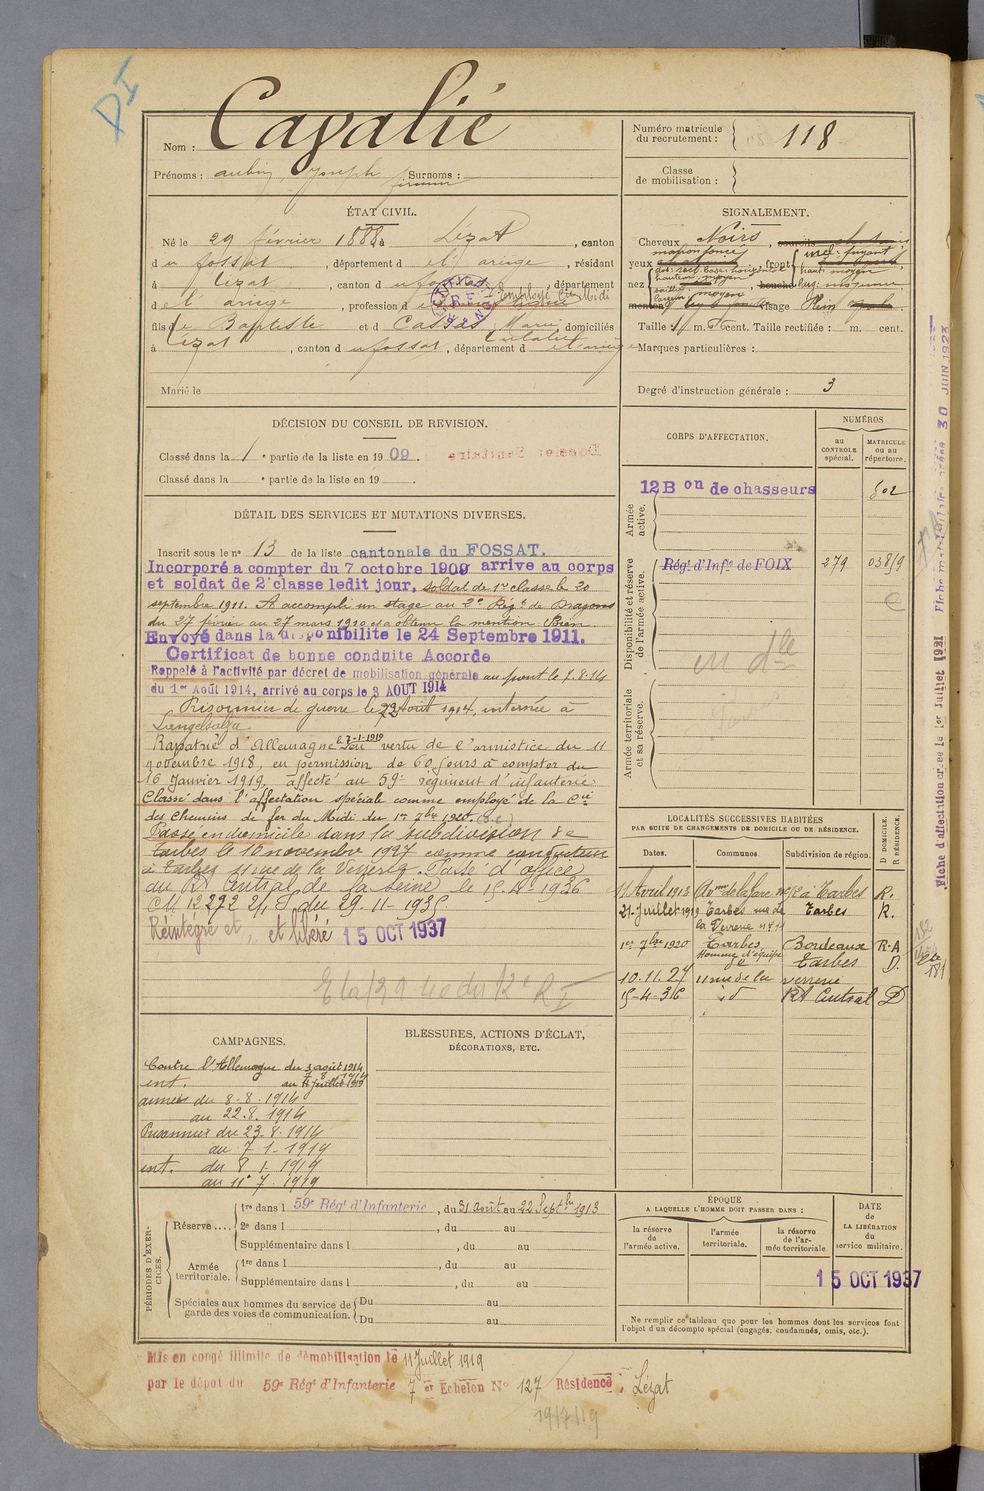 PI
Nom : Cavalié
Prénoms : aubin, Joseph Surnoms :
firmin
Numéro matricule du recrutement : 118
Classe de mobilisation :
ÉTAT CIVIL.
Né le 29 février 1888 à Lézat, canton
du fossat, département de l'ariège, résidant
à Lézat, canton du fossat, département
de l'ariège, profession d employé Cie Midi
fils de Baptiste et d Cassas Marie domiciliés
à Lézat, canton du fossat, département de l'ariège
Marié le
SIGNALEMENT.
Cheveux Noirs, sourcils
yeux marron foncé, front incl: fuyant
haut: moyen
nez dos: rect. base: horizontal
hauteur moyen
bouche larg: moyenne
saillie moyen
largeur
menton visage Plein
Taille : 1 m. cent. Taille rectifiée : m. cent.
Marques particulières :
Degré d'instruction générale : 3
DÉCISION DU CONSEIL DE REVISION.
Classé dans la 1re partie de la liste en 1909.
Classé dans la e partie de la liste en 19
Dossier Sanitaire
CORPS D'AFFECTATION.
NUMÉROS
au CONTROLE spécial.
MATRICULE ou au répertoire.
Armée active.
12 Bon de chasseurs 802
Disponibilité et réserve de l'armée active.
Régt d'Infie de FOIX 279 03819
C
un dlle
Armée territoriale et sa réserve.
DÉTAIL DES SERVICES ET MUTATIONS DIVERSES.
Inscrit sous le n° 13 de la liste cantonale du FOSSAT.
Incorporé à compter du 7 octobre 1909 arrivé au corps
et soldat de 2e classe ledit jour, soldat de 1re classe le 20
septembre 1911. A accompli un stage au 2e Régt de Dragons
du 27 février au 27 mars 1910 et a obtenu la mention: Bien.
Envoyé dans la disponibilité le 24 Septembre 1911.
Certificat de bonne conduite Accordé
Rappelé à l'activité par décret de mobilisation générale au front le 7.8.14
du 1er Août 1914, arrivé au corps le 3 AOUT 1914
Prisonnier de guerre le 23 Août 1914, interné à
Langelsalza
Rapatrié d'Allemagne le 7-1-1919 en vertu de l'armistice du 11
novembre 1918, en permission de 60 jours à compter du
16 Janvier 1919, affecté au 59e régiment d'infanterie.
Classé dans l'affectation spéciale comme employé de la Cie
des Chemins de fer du Midi du 1er 7bre 1920.
Passé en domicile dans la subdivision de
Tarbes le 10 novembre 1927 comme conducteur
à Tarbes 11 rue de la Verrerie. Passé d'office
au RI Central de la Seine le 15-4-1936
CM 12272 2/1 S du 29-11-1935
Réintégré et, et libéré 15 OCT 1937
LOCALITÉS SUCCESSIVES HABITÉES
PAR SUITE DE CHANGEMENTS DE DOMICILE OU DE RÉSIDENCE.
Dates. Communes. Subdivision de région. D DOMICILE. R RÉSIDENCE.
11 Avril 1913 Tarbes R.
21-Juillet 1919 Tarbes rue de la Verrerie n° 11 Tarbes R.
1er 7bre 1920 Tarbes Bordeaux R-A
Homme d'équipe
10.11.27 11 rue de la verrerie Tarbes D.
15-4-36 id RI Central D
CAMPAGNES.
Contre l'Allemagne du 3 août 1914
int. au 11 juillet 1919
armées du 8-8-1914
au 22.8.1914
Prisonnier du 23.8.1914
au 7-1-1919
int. du 8.1.1919
au 11.7.1919
BLESSURES, ACTIONS D'ÉCLAT,
DÉCORATIONS, ETC.
PÉRIODES D'EXERCICES.
Réserve.... 1re dans l 59e Régt d'Infanterie, du 31 août au 22 Septbre 1913
2e dans l , du au
Supplémentaire dans l , du au
Armée territoriale. 1re dans l , du au
Supplémentaire dans l , du au
Spéciales aux hommes du service de garde des voies de communication. Du au
Du au
ÉPOQUE
A LAQUELLE L'HOMME DOIT PASSER DANS :
la réserve de l'armée active.
l'armée territoriale.
la réserve de l'armée territoriale.
DATE de LA LIBÉRATION du service militaire.
15 OCT 1937
Ne remplir ce tableau que pour les hommes dont les services font
l'objet d'un décompte spécial (engagés, condamnés, omis, etc.).
Mis en congé illimité de démobilisation le 11 Juillet 1919
par le dépôt du 59e Régt d'Infanterie 7e Echelon N° 127 Résidence : Lézat
19/7/19
Fiche d'affectation créée le 1er Juillet 1921
30 JUIN 1923